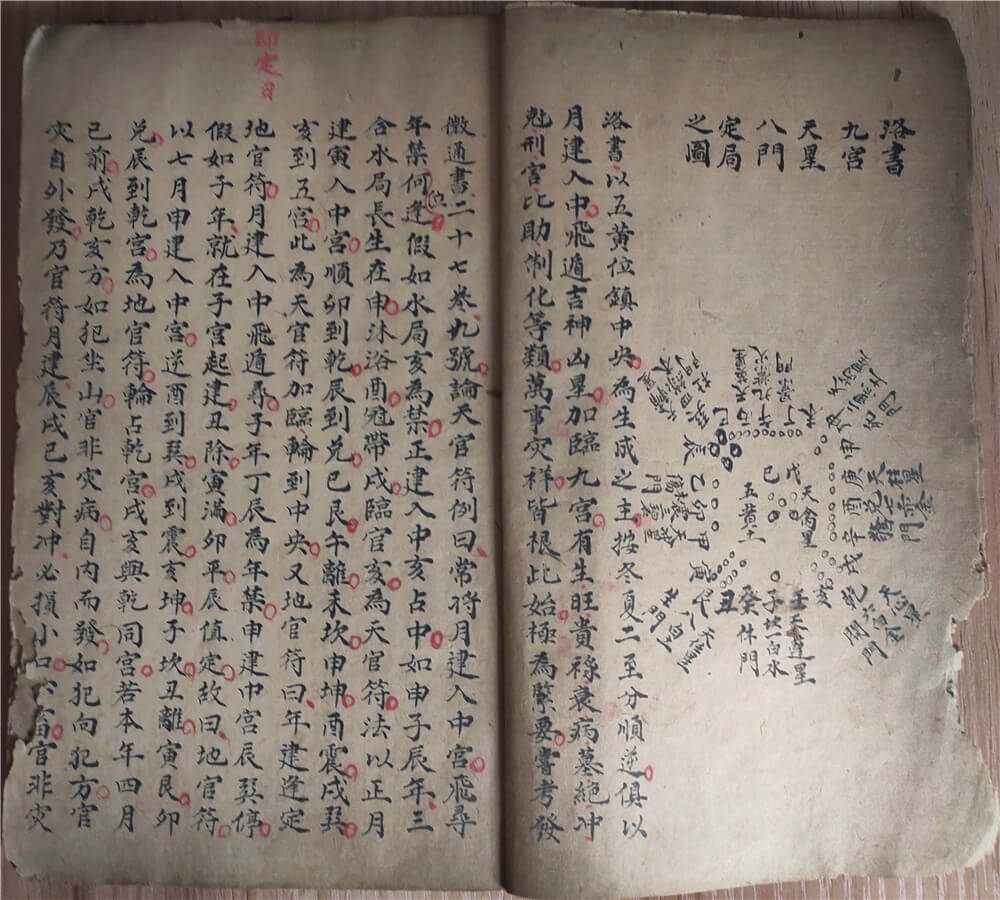 洛書
九宮
天星
八門
定局
之圖
五黃土
天禽星
戊
己
壬天蓬星
子坎一白水
癸 休門
丑
艮八
生門
天任星
寅
甲
卯
乙
傷門
辰
巳
丙
午
丁
未
坤
申
庚
酉
辛
戌
乾六白金
開門
亥
洛書以五黃位鎮中央為生成之主按冬夏二至分順逆俱以
月建入中飛遁吉神凶星加臨九宮有生旺貴祿衰病墓絕冲
尅刑害比助制化等類萬事灾祥皆根此始極為緊要嘗考發
微通書二十七卷九號論天官符例曰常將月建入中宮飛尋
年禁何位逢假如水局亥為禁正建入中亥占中如申子辰年三
合水局長生在申沐浴酉冠帶戌臨官亥為天官符法以正月
建寅入中宮順卯到乾辰到兌巳艮午離未坎申坤酉震戌巽
亥到五宮此為天官符加臨輪到中央又地官符曰年建逢定
地官符月建入中飛遁尋子年丁辰為年禁申建中宮辰巽停
假如子年就在子宮起建丑除寅滿卯平辰值定故曰地官符
以七月申建入中宮逆酉到巽戌到震亥坤子坎丑離寅艮卯
兌辰到乾宮為地官符輪占乾宮戌亥與乾同宮若本年四月
己前戌乾亥方如犯坐山官非灾病自內而發如犯向犯方官
灾自外發乃官符月建辰戌巳亥對冲必損小口六畜官非灾
即定日